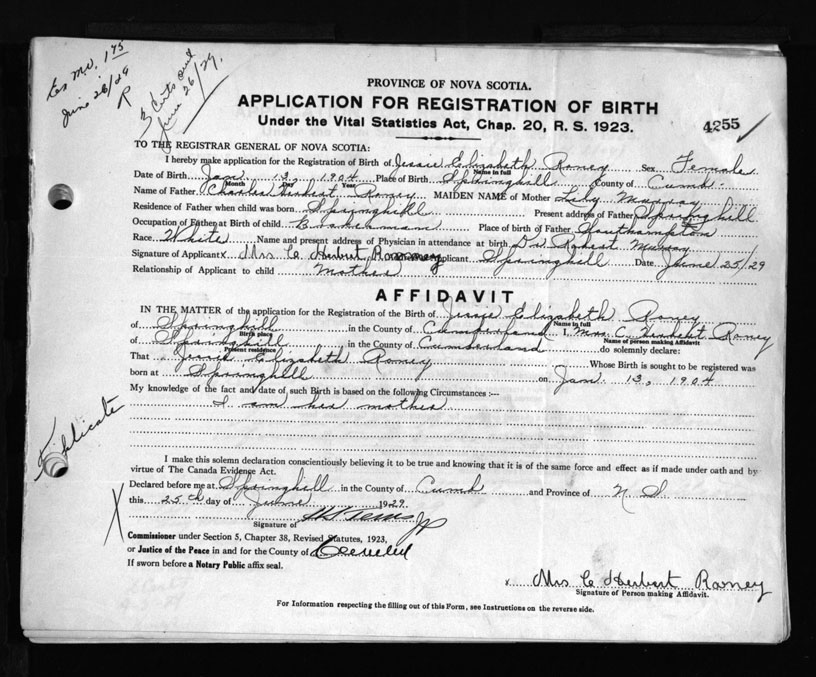 June 26/29
R
3 Certs out
June 26/29.
PROVINCE OF NOVA SCOTIA.
APPLICATION FOR REGISTRATION OF BIRTH
Under the Vital Statistics Act, Chap. 20, R. S. 1923.
4255
TO THE REGISTRAR GENERAL OF NOVA SCOTIA:
I hereby make application for the Registration of Birth of Jessie Elizabeth Roney Sex Female
Name in full
Date of Birth Jan 13, 1904 Place of Birth Springhill County of Cumb.
Month Day Year
Name of Father Charles Herbert Roney MAIDEN NAME of Mother Lily Murray
Residence of Father when child was born Springhill Present address of Father Springhill
Occupation of Father at Birth of child Brakeman Place of birth of Father Southampton
Race White Name and present address of Physician in attendance at birth Dr. Robert Murray
Signature of Applicant x Mrs C Herbert Roney Applicant Springhill Date June 25/29
Relationship of Applicant to child Mother
AFFIDAVIT
IN THE MATTER of the application for the Registration of the Birth of Jessie Elizabeth Roney
Name in full
of Springhill in the County of Cumberland I, Mrs. C. Herbert Roney
Birth place Name of person making Affidavit
of Springhill in the County of Cumberland do solemnly declare:
Present residence
That Jessie Elizabeth Roney Whose Birth is sought to be registered was
born at Springhill on Jan. 13, 1904
My knowledge of the fact and date of such Birth is based on the following Circumstances :—
I am her mother
Triplicate
I make this solemn declaration conscientiously believing it to be true and knowing that it is of the same force and effect as if made under oath and by
virtue of The Canada Evidence Act.
Declared before me at Springhill in the County of Cumb and Province of N S.
this 25th day of June 1929
Signature of JP
Commissioner under Section 5, Chapter 38, Revised Statutes, 1923,
or Justice of the Peace in and for the County of Cumbld
If sworn before a Notary Public affix seal.
x Mrs C Herbert Roney
Signature of Person making Affidavit.
For Information respecting the filling out of this Form, see Instructions on the reverse side.